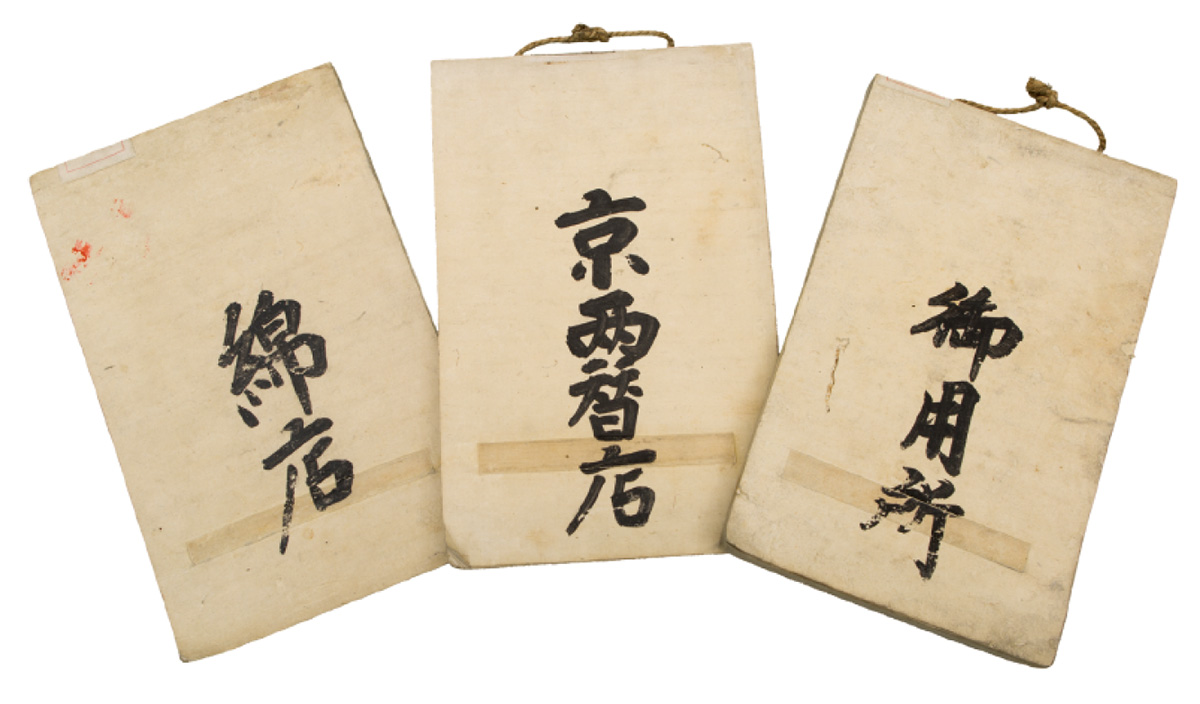 綿店
京两替店
御用所